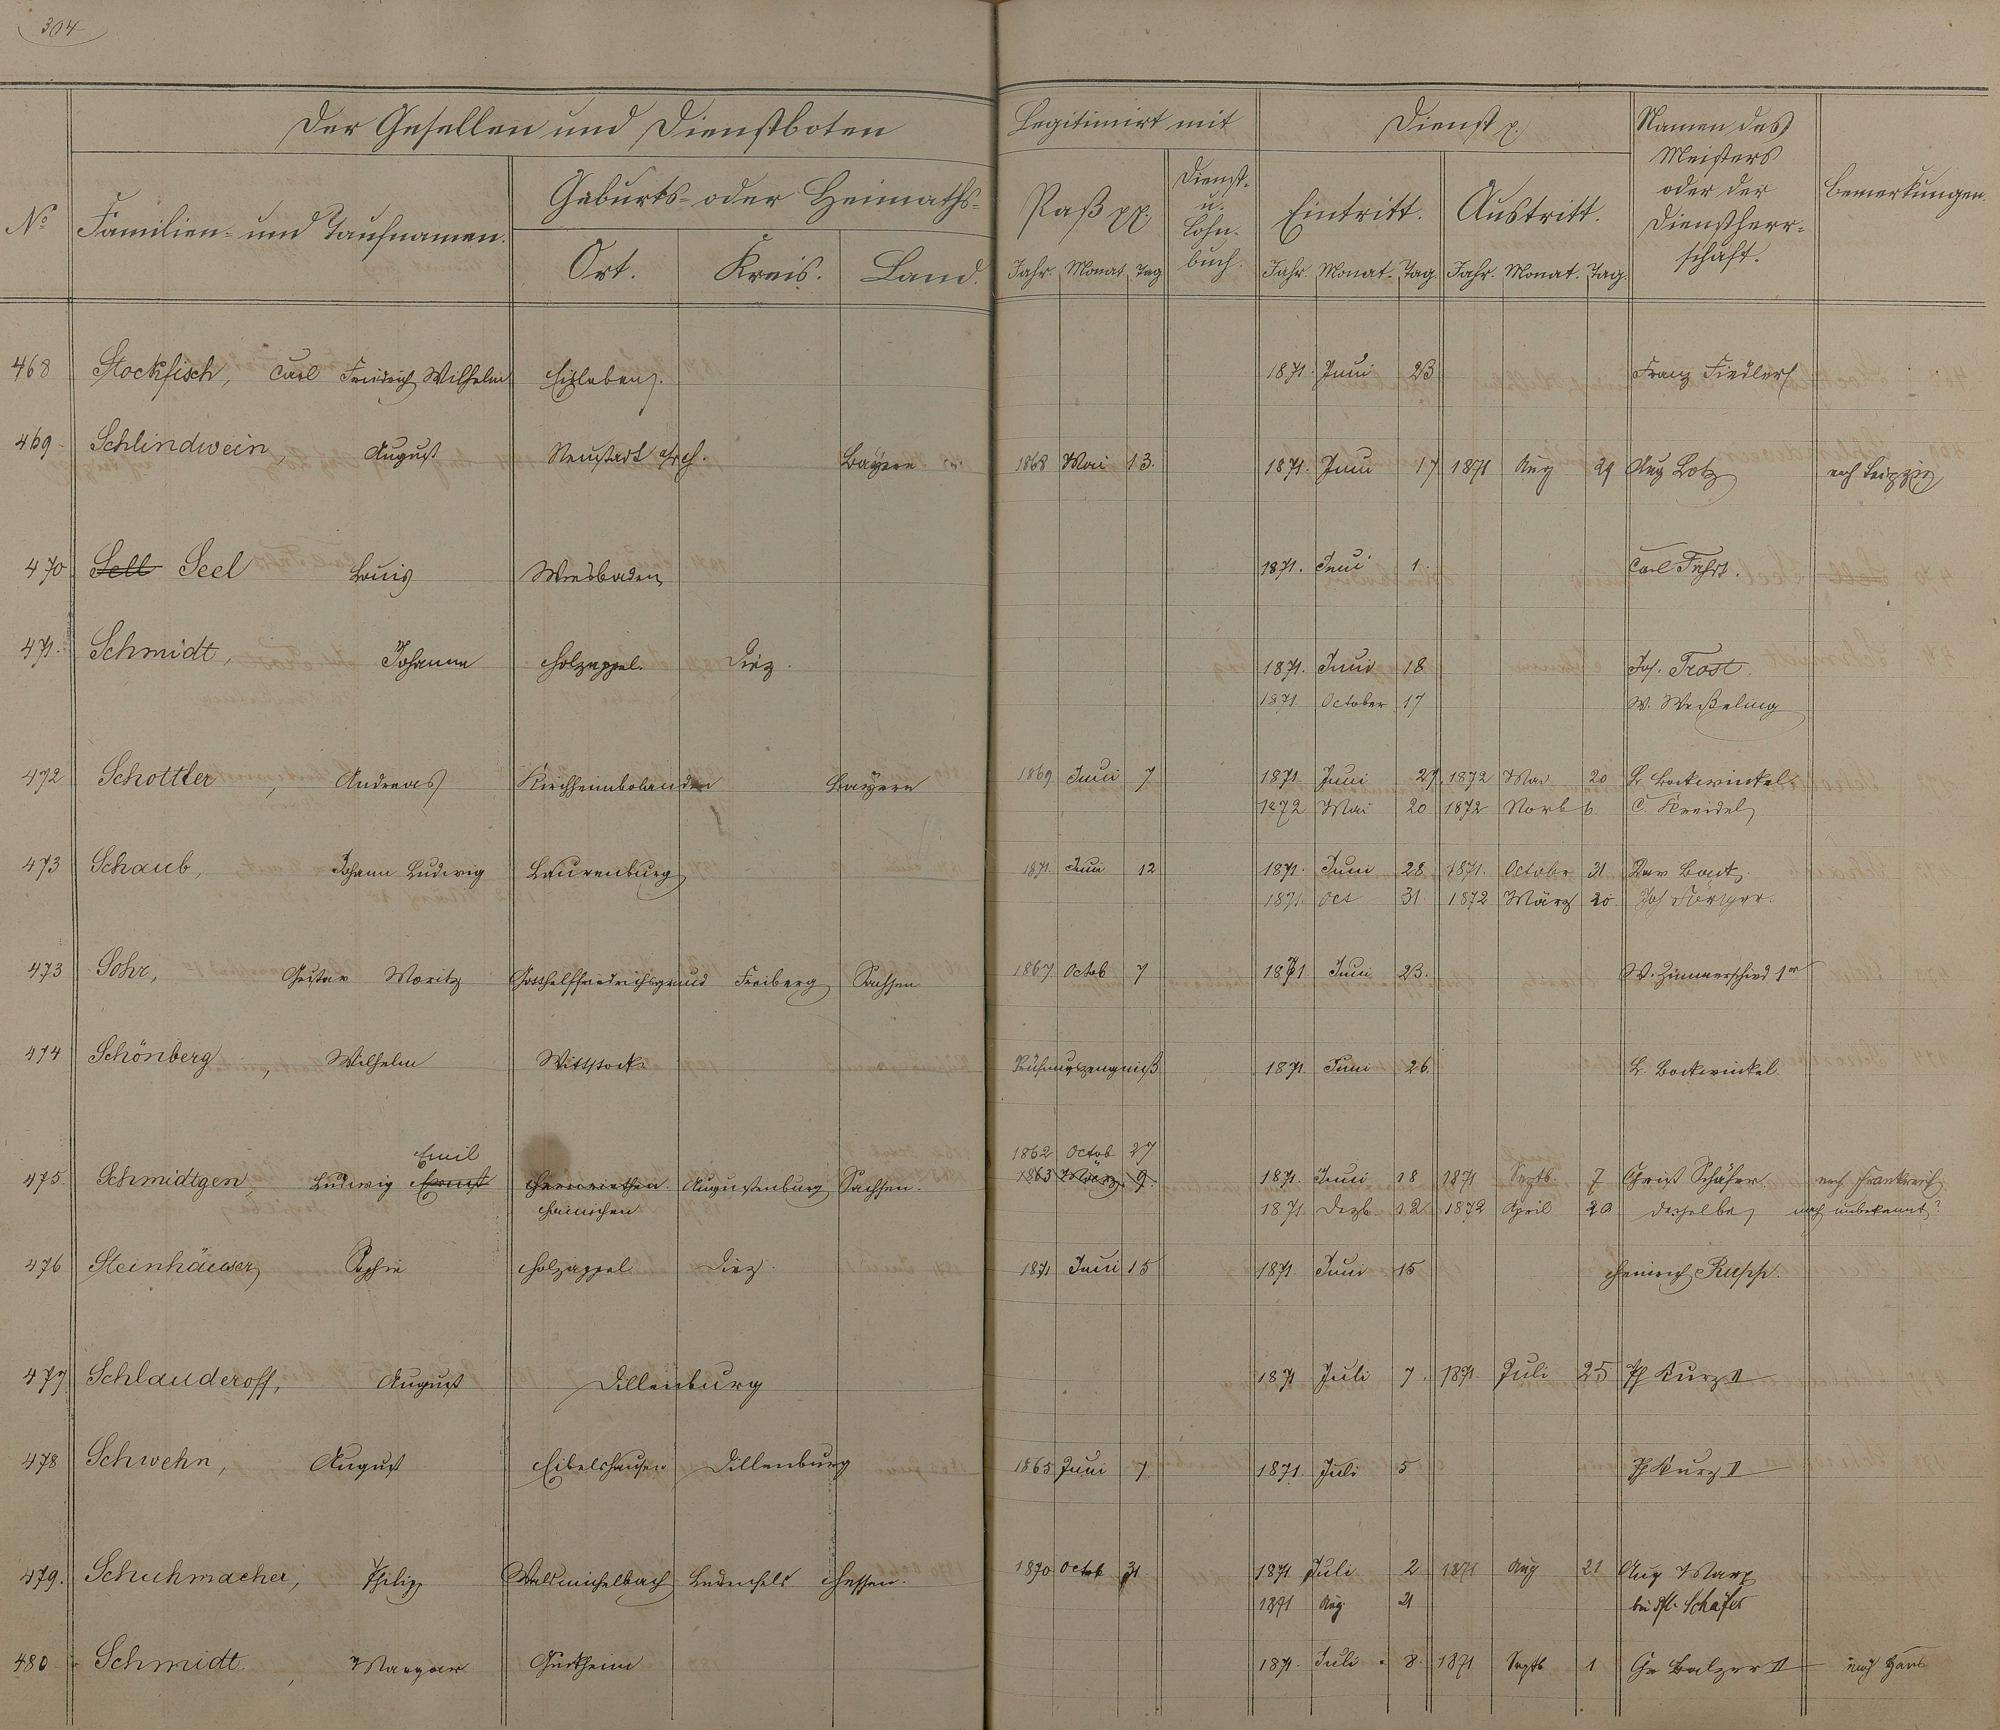 304
Der Gesellen und Dienstboten
Legitimirt mit
Dienst p.
Namen des Meisters oder der Dienstherrschaft.
Bemerkungen.
No
Familien- und Taufnamen.
Geburts- oder Heimaths-
Ort. Kreis. Land.
Paß pp.
Dienst- u. Lohn-buch.
Eintritt. Austritt.
Jahr. Monat. Tag Jahr. Monat. Tag. Jahr. Monat. Tag.
468 Stockfisch, Carl Friedrich Wilhelm Eisleben. 1871. Juni 23 Franz Fiedler
469 Schlindwein, August Neustadt Bayern 1868 Mai 13. 1871. Juni 17 1871 Aug 29 Aug Lotz nach Leipzig
470 Sell Seel Louis Wiesbaden 1871. Juni 1. Carl
471. Schmidt, Johanna Holzappel. Diez. 1871. Juni 18 Joh. Trost.
1871 October 17 W. Weßeling
472 Schottler, Andreas Kirchheimbolanden Bayern 1869 Juni 7 1871 Juni 27. 1872 Mai 20 L. Bockwinkel
1872 Mai 20 1872 Novb 6. C. Kreidel
473 Schaub, Johann Ludwig Laurenburg 1871. Juni 12 1871. Juni 28 1871. October 31
1871. Oct 31. 1872 März 20. Joh
473 Sohr, Gustav Moritz Gotthelffriedrichsgrund Freiberg Sachsen 1867 Octob 7 1871 Juni 23. W. Zimmerschied 1r
474 Schönberg, Wilhelm Wittstock 1871. Juni 26. L. Bockwinkel.
Emil 1862 Octob 27
475. Schmidtgen, Ludwig Ernst Augustenburg Sachsen. 1863 März 9. 1871. Juni 18 1871 Septb. 7 Christ Schäfer nach Frankreich
Hainichen 1871 Dezb. 12 1872 April 20 derselbe nach unbekannt?
476 Steinhäuser, Sophie Holzappel Diez. 1871 Juni 15 1871. Juni 15 Heinrich Rupp.
477 Schlauderoff, August Dillenburg 1871 Juli 7. 1871. Juli 25 Ph Kurz II
478 Schwehn, August Eibelshausen Dillenburg 1865 Juni 7 1871. Juli 5 Ph Kurz II
479. Schuhmacher, Philipp Waldmichelbach Lindenfels Hessen. 1870 Octob 31 1871 Juli 2 1871 Aug 21 Aug Marx
1871 Aug. 21 bei Schäfer
480 Schmidt, 1871. Juli 8. 1871 Septb 1 Balzer II nach Haus